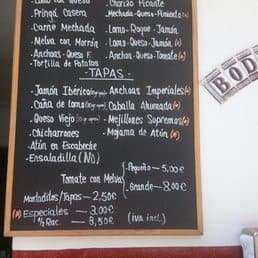 Lomo con Queso
Chorizo Picante
Pringá Casera
Mechada-Queso-Pimiento (*)
Carne Mechada
Lomo-Roque-Jamón
Melva con Morrón
Lomo-Queso-Jamón (*)
Anchoas-Queso F.
Anchoas-Queso-Tomate (*)
Tortilla de Patatas
-TAPAS-
- Jamón Ibérico
- Anchoas Imperiales (*)
- Caña de Lomo
- Caballa Ahumada (*)
- Queso Viejo
- Mejillones Supremos (*)
- Chicharrones
- Mojama de Atún (*)
- Atún en Escabeche
- Ensaladilla (No)
Tomate con Melva
Pequeño - 5,00€
Grande - 8,00€
Montaditos/Tapas - 2,50€
(*) Especiales - 3,00€
1/2 Rac. - 8,50€ (iva incl.)
BOD